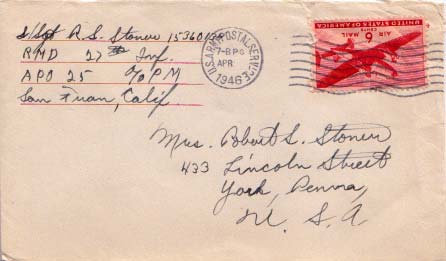 S/Sgt R. S. Stoner
RMD 27 Inf.
APO 25 c/o P.M
San Fran, Calif.
U.S. ARMY POSTAL SERVICE
7-8 PM
APR
1946
UNITED STATES OF AMERICA
AIR MAIL
6 CENTS
Mrs. Robert S. Stoner
433 Lincoln Street
York, Penna,
U. S. A